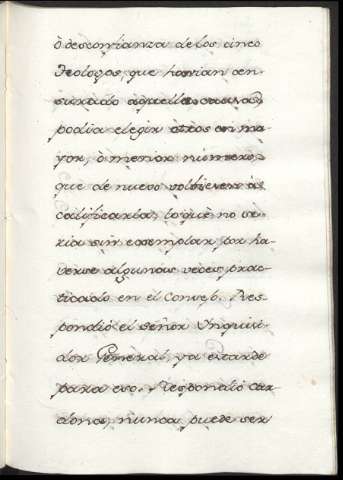 ò desconfianza de los cinco
Teologos, que havian cen-
surado aquella causa,
podia elegir otros en ma-
yor, ò menor número,
que de nuevo volviesen à
calificarla, lo que no se-
ria sin exemplar por ha-
verse algunas veces prac-
ticado en el Consejo. Res-
pondiò el señor Inquisi-
dor General, ya es tarde
para eso. Respondiò Car-
dona, nunca puede ser